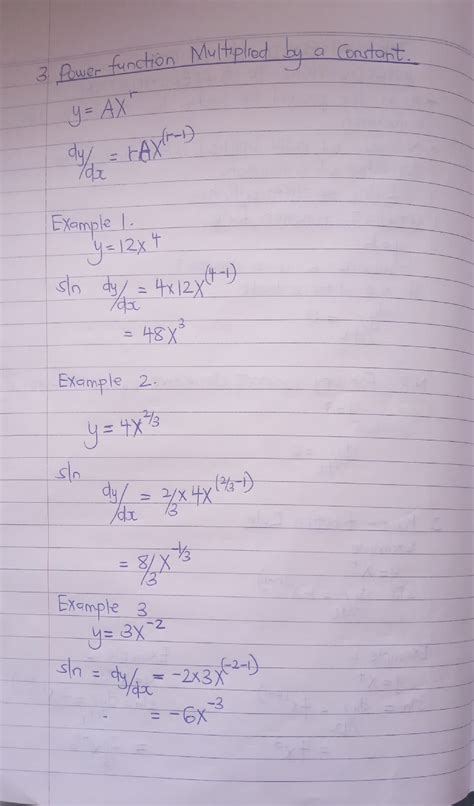 3. Power function Multiplied by a Constant.
y = AX^r
dy/dx = rAX^(r-1)
Example 1.
y = 12x^4
sln dy/dx = 4x12X^(4-1)
= 48X^3
Example 2.
y = 4X^2/3
sln
dy/dx = 2/3 x 4X^(2/3-1)
= 8/3 X^-1/3
Example 3
y = 3X^-2
sln = dy/dx = -2x3X^(-2-1)
= -6X^-3